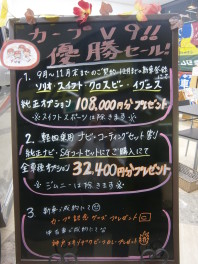 カープV9!!
優勝セール!
1. 9月~11月末までのご契約・12月まで新車登録
ソリオ・スイフト・クロスビー・イグニス
純正オプション 108,000円分プレゼント
※スイフトスポーツは除きます※
2. 軽自動車用 ナビ・コーティングセット割り
純正ナビ・SGコートセットにてご購入にて
全車種オプション 32,400円分プレゼント
※ジムニーは除きます※
3 新車ご成約にて
カープ記念グッズプレゼント
中古車ご成約にて
神戸
プレゼント